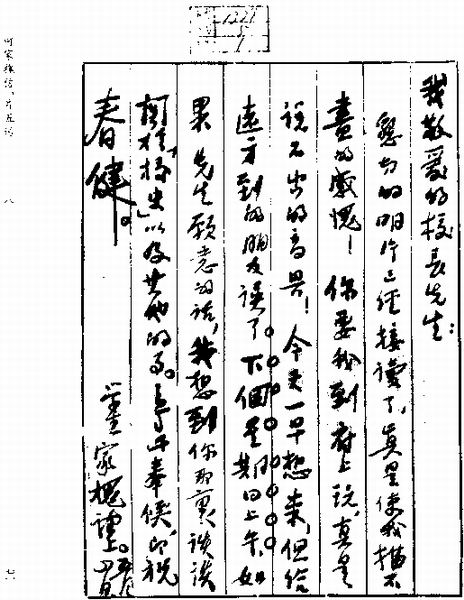 我敬爱的校長先生：
懇切的明片已經接讀了，真是使我描不
盡的感愧！你要我到府上玩，真是
說不出的高興！今天一早想來，但給
遠方到的朋友誤了。下個星期日上午，如
果先生願意的話，我想到你那裏談談
關於「校史」以及其他的事。專此奉候，即祝
春健。
家槐謹上。
何家槐信、片五函
八